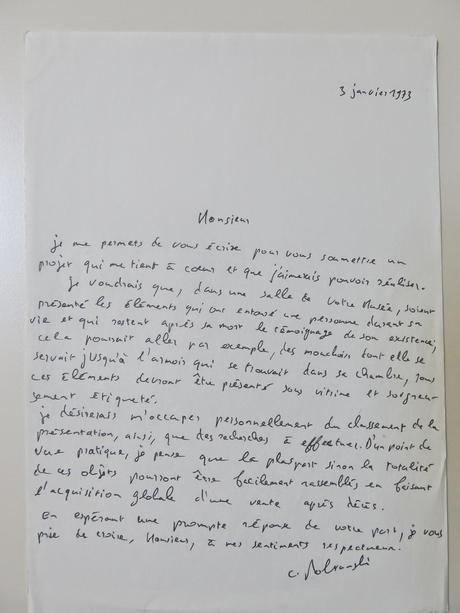 3 janvier 1973
Monsieur
je me permets de vous écrire pour vous soumettre un
projet qui me tient à cœur et que j'aimerais pouvoir réaliser.
je voudrais que, dans une salle de votre Musée, soient
présenté les éléments qui ont entouré une personne durant sa
vie et qui restent après sa mort le témoignage de son existence;
cela pourrait aller par exemple, des mouchoirs dont elle se
servait jusqu'à l'armoire qui se trouvait dans sa chambre, tous
ces éléments devront être présentés sous vitrine et soigneu-
sement étiqueté.
je désirerais m'occuper personnellement du classement de la
présentation, ainsi, que des recherches à effectuer. D'un point de
vue pratique, je pense que la pluspart sinon la totalité
de ces objets pourront être facilement rassemblés en faisant
l'acquisition globale d'une vente après décès.
En espérant une prompte réponse de votre part, je vous
prie de croire, Monsieur, à mes sentiments respectueux.
C. Boltanski